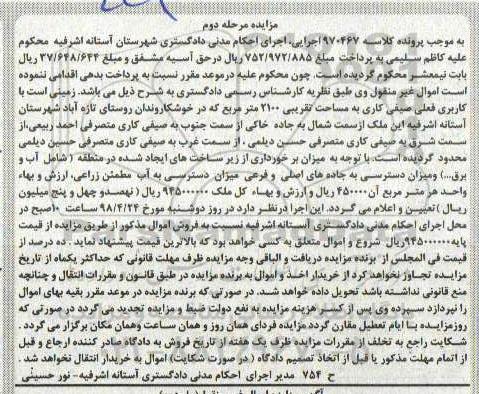 مزایده مرحله دوم
به موجب پرونده کلاسه ۹۷۰۴۶۷ اجرایی، اجرای احکام مدنی دادگستری شهرستان آستانه اشرفیه محکوم
علیه کاظم سلیمی به پرداخت مبلغ ۷۵۲/۹۷۲/۸۸۵ ریال درحق آسیه مشفق و مبلغ ۳۷/۶۴۸/۶۴۴ ریال
بابت نیمعشر محکوم گردیده است. چون محکوم علیه درموعد مقرر نسبت به پرداخت بدهی اقدامی ننموده
است اموال غیر منقول وی طبق نظریه کارشناس رسمی دادگستری به شرح ذیل می باشد. زمینی است با
کاربری فعلی صیفی کاری به مساحت تقریبی ۲۱۰۰ متر مربع که در خوشکاروندان روستای تازه آباد شهرستان
آستانه اشرفیه این ملک ازسمت شمال به جاده خاکی از سمت جنوب به صیفی کاری متصرفی احمد ربیعی،از
سمت شرق به صیفی کاری متصرفی حسین دیلمی ، از سمت غرب به صیفی کاری متصرفی حسین دیلمی
محدود گردیده است. با توجه به میزان بر خورداری از زیر ساخت های ایجاد شده در منطقه ( شامل آب و
برق...) ومیزان دسترسی به جاده های اصلی و فرعی میزان دسترسی به آب مطمئن زراعی، ارزش و بهاء
واحد هر متر مربع آن ۴۵۰۰۰۰ ریال و ارزش و بهاء کل ملک ۹۴۵۰۰۰۰۰۰ ریال ( نهصدو چهل و پنج میلیون
ریال ) تعیین و اعلام می گردد. این اجرا درنظر دارد در روز دوشنبه مورخ ۹۸/۴/۲۴ ساعت ۱۰صبح در
محل اجرای احکام مدنی دادگستری آستانه اشرفیه نسبت به فروش اموال مذکور از طریق مزایده از قیمت
پایه ۹۴۵۰۰۰۰۰۰ریال شروع و اموال متعلق به کسی خواهد بود که بالاترین قیمت پیشنهاد نماید . ده درصد از
قیمت فی المجلس از برنده مزایده دریافت و الباقی وجه مزایده ظرف مهلت قانونی که حداکثر یکماه از تاریخ
مزایده تجاوز نخواهد کرد از خریدار اخذ و اموال به برنده مزایده در طبق قانون و مقررات انتقال و چنانچه
منع قانونی نداشته باشد تحویل داده خواهد شد. در صورتی که برنده مزایده در موعد مقرر بقیه بهای اموال
را نپردازد سپرده وی پس از کسر هزینه مزایده به نفع دولت ضبط و مزایده تجدید می گردد در صورتی که
روزمزایده با ایام تعطیل مقارن گردد مزایده فردای همان روز و همان ساعت وهمان مکان برگزار می گردد .
شکایت راجع به تخلف از مقررات مزایده ظرف یک هفته از تاریخ فروش به دادگاه صادر کننده ارجاع و قبل
از اتمام مهلت مذکور یا قبل از اتخاذ تصمیم دادگاه ( در صورت شکایت) اموال به خریدار انتقال نخواهد شد .
ح ۷۵۴ مدیر اجرای احکام مدنی دادگستری آستانه اشرفیه- نور حسینی